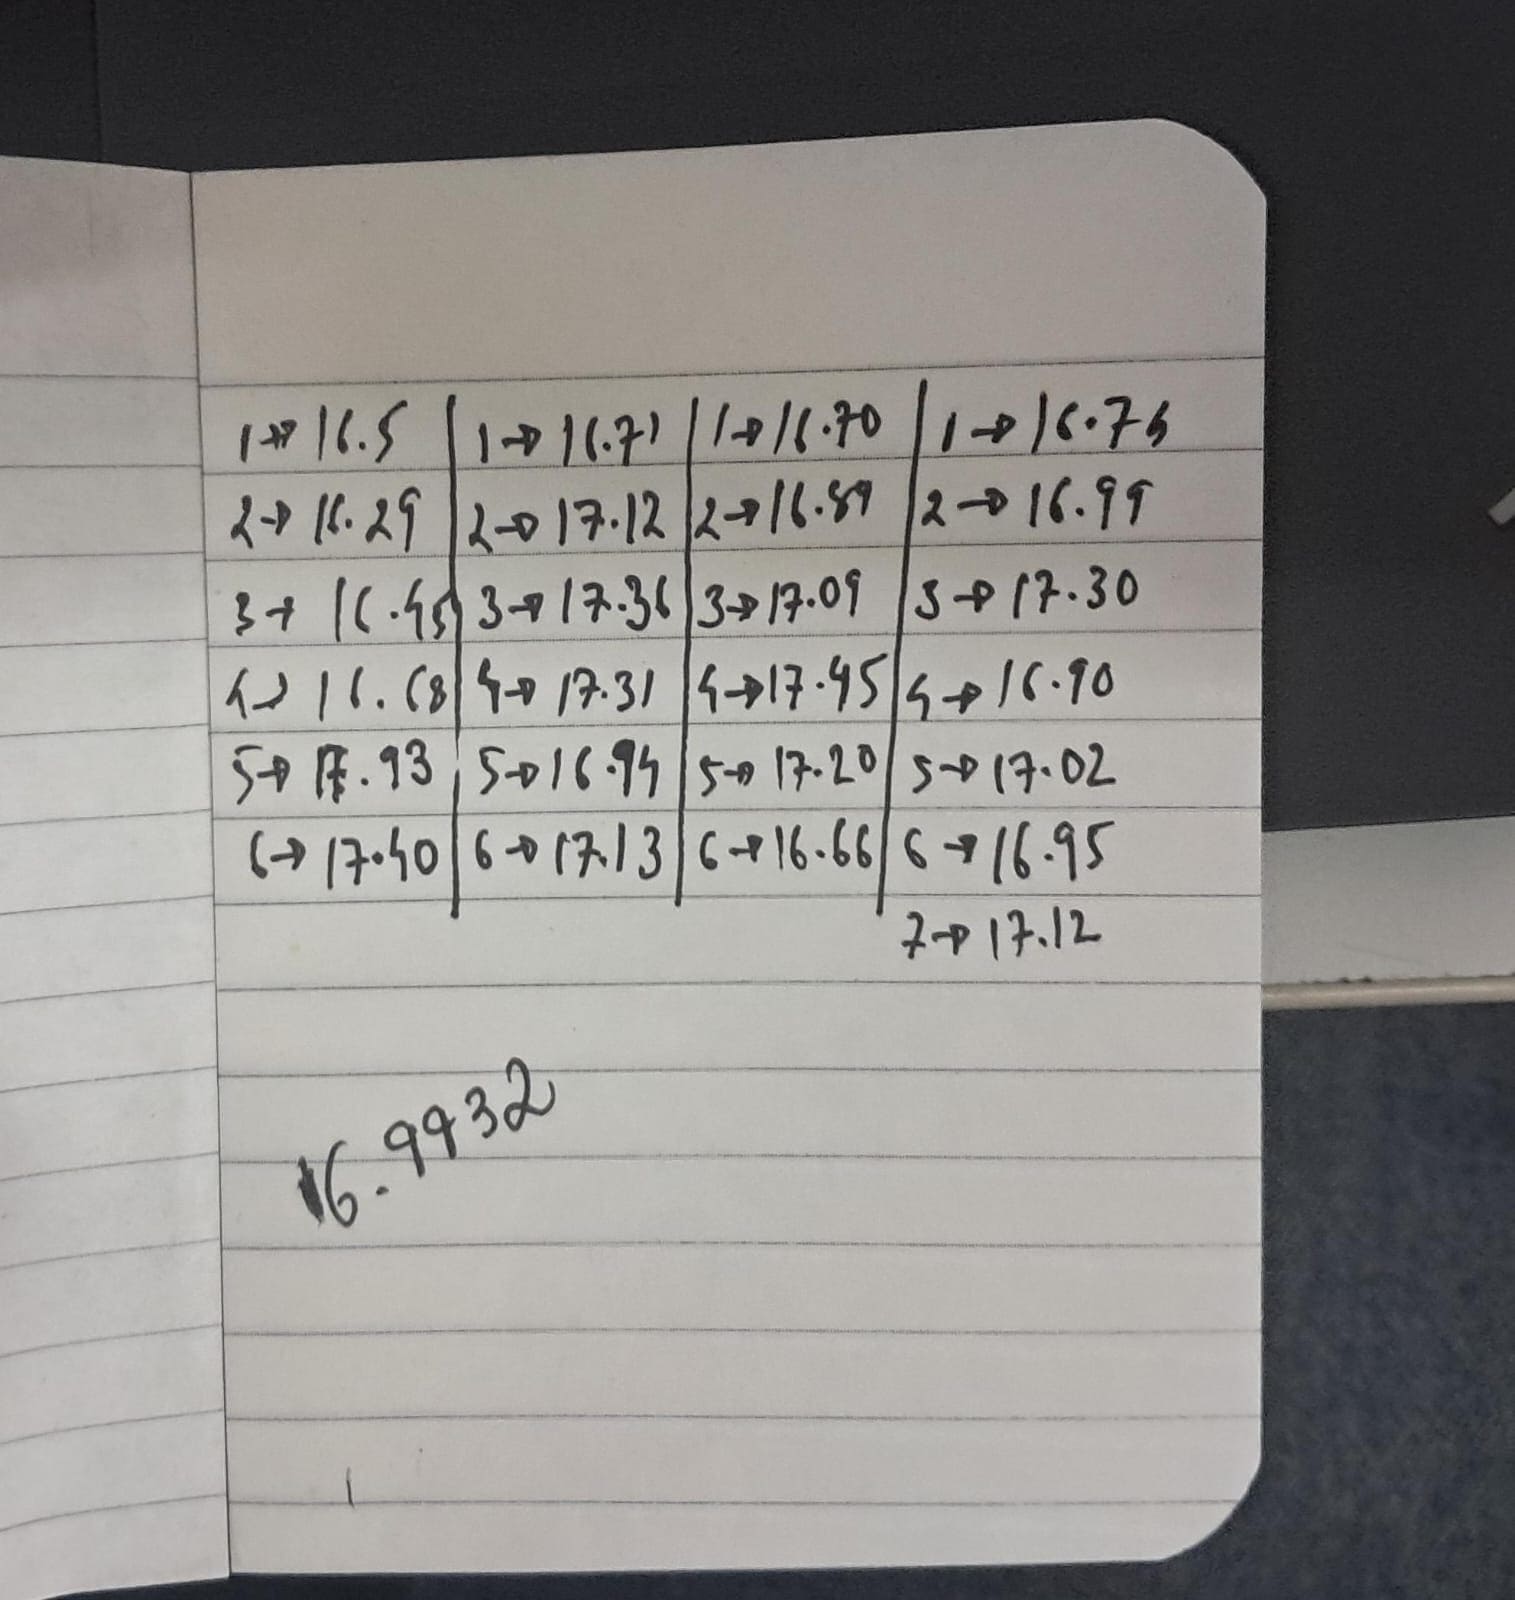 1→ 16.5 | 1→ 16.71 | 1→ 16.70 | 1→ 16.75
2→ 16.29 | 2→ 17.12 | 2→ 16.89 | 2→ 16.99
3→ 16.45 | 3→ 17.36 | 3→ 17.09 | 3→ 17.30
4→ 16.68 | 4→ 17.31 | 4→ 17.45 | 4→ 16.90
5→ 17.93 | 5→ 16.94 | 5→ 17.20 | 5→ 17.02
6→ 17.40 | 6→ 17.13 | 6→ 16.66 | 6→ 16.95
7→ 17.12
16.9932